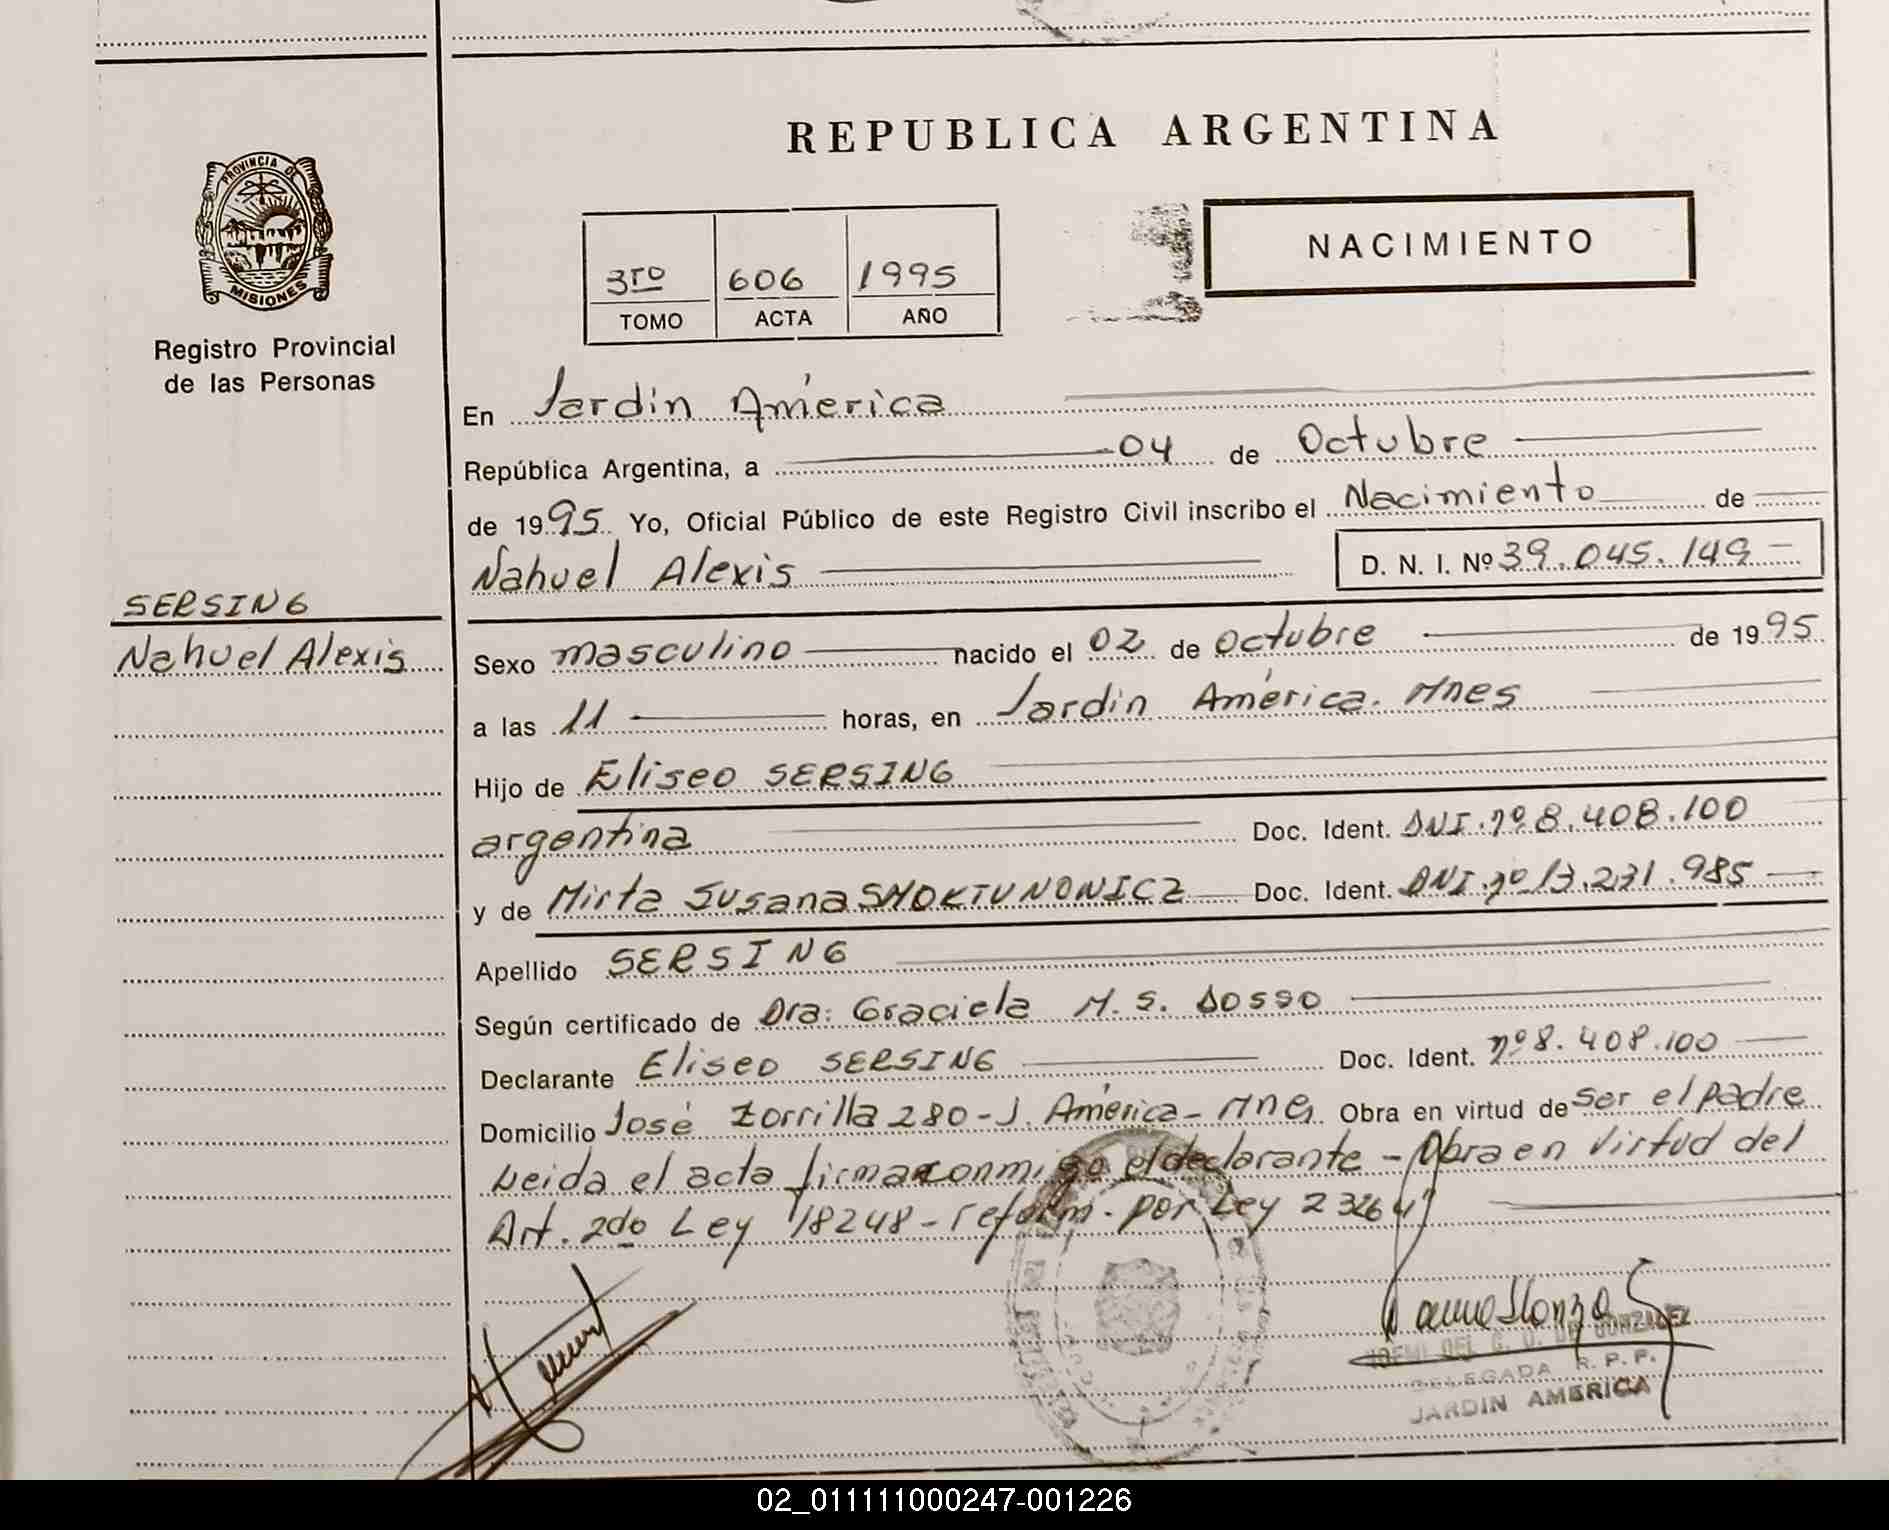 REPUBLICA ARGENTINA
PROVINCIA DE
MISIONES
Registro Provincial
de las Personas
NACIMIENTO
3ro 606 1995
TOMO ACTA AÑO
En Jardín América
República Argentina, a 04 de Octubre
de 1995 Yo, Oficial Público de este Registro Civil inscribo el Nacimiento de
Nahuel Alexis D. N. I. Nº 39.045.149
SERSING
Nahuel Alexis
Sexo masculino nacido el 02 de Octubre de 1995
a las 11 horas, en Jardín América. Mnes
Hijo de Eliseo SERSING
argentina Doc. Ident. DNI. nº 8.408.100
y de Mirta Susana SMOKTUNONICZ Doc. Ident. DNI. nº 13.231.985
Apellido SERSING
Según certificado de Dra: Graciela M. S. DOSSO
Declarante Eliseo SERSING Doc. Ident. nº 8.408.100
Domicilio José Zorrilla 280 - J. América - Mnes Obra en virtud de ser el padre
Leida el acta firma conmigo el declarante - Obra en virtud del
Art. 2do Ley 18248 - reform. por Ley 23264
DE GONZALEZ
DELEGADA R. P. P.
JARDIN AMERICA
02_011111000247-001226